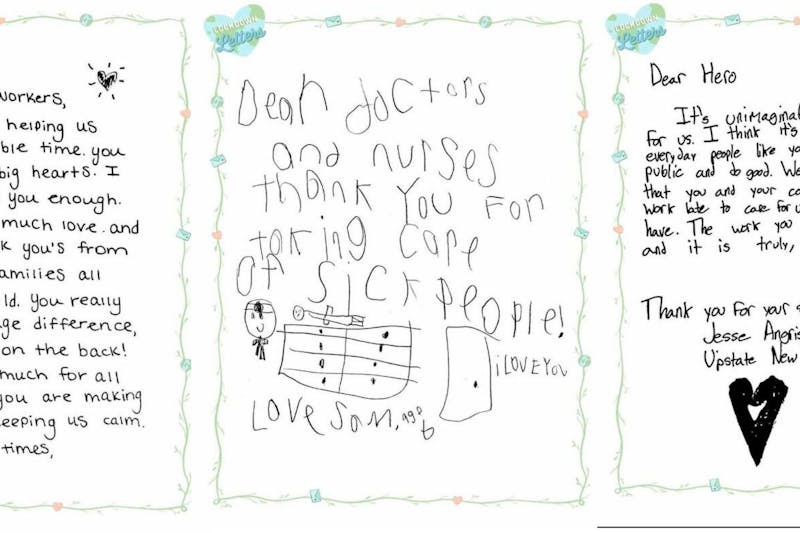 workers,
helping us
ble time. you
big hearts. I
you enough.
much love and
k you's from
families all
ld. You really
ge difference,
on the back!
much for all
you are making
keeping us calm.
times,
LOCKDOWN
Letters
Dear doctors
and nurses
thank you for
taking care
of sick people!
i LOVE YOU
LOVE SAM, age
6
LOCKDOWN
Letters
Dear Hero
It's unimaginab
for us. I think it's
everyday people like yo
public and do good. We
that you and your co
work late to care for u
have. The work you
and it is truly,
Thank you for your s
Jesse Angris
Upstate New